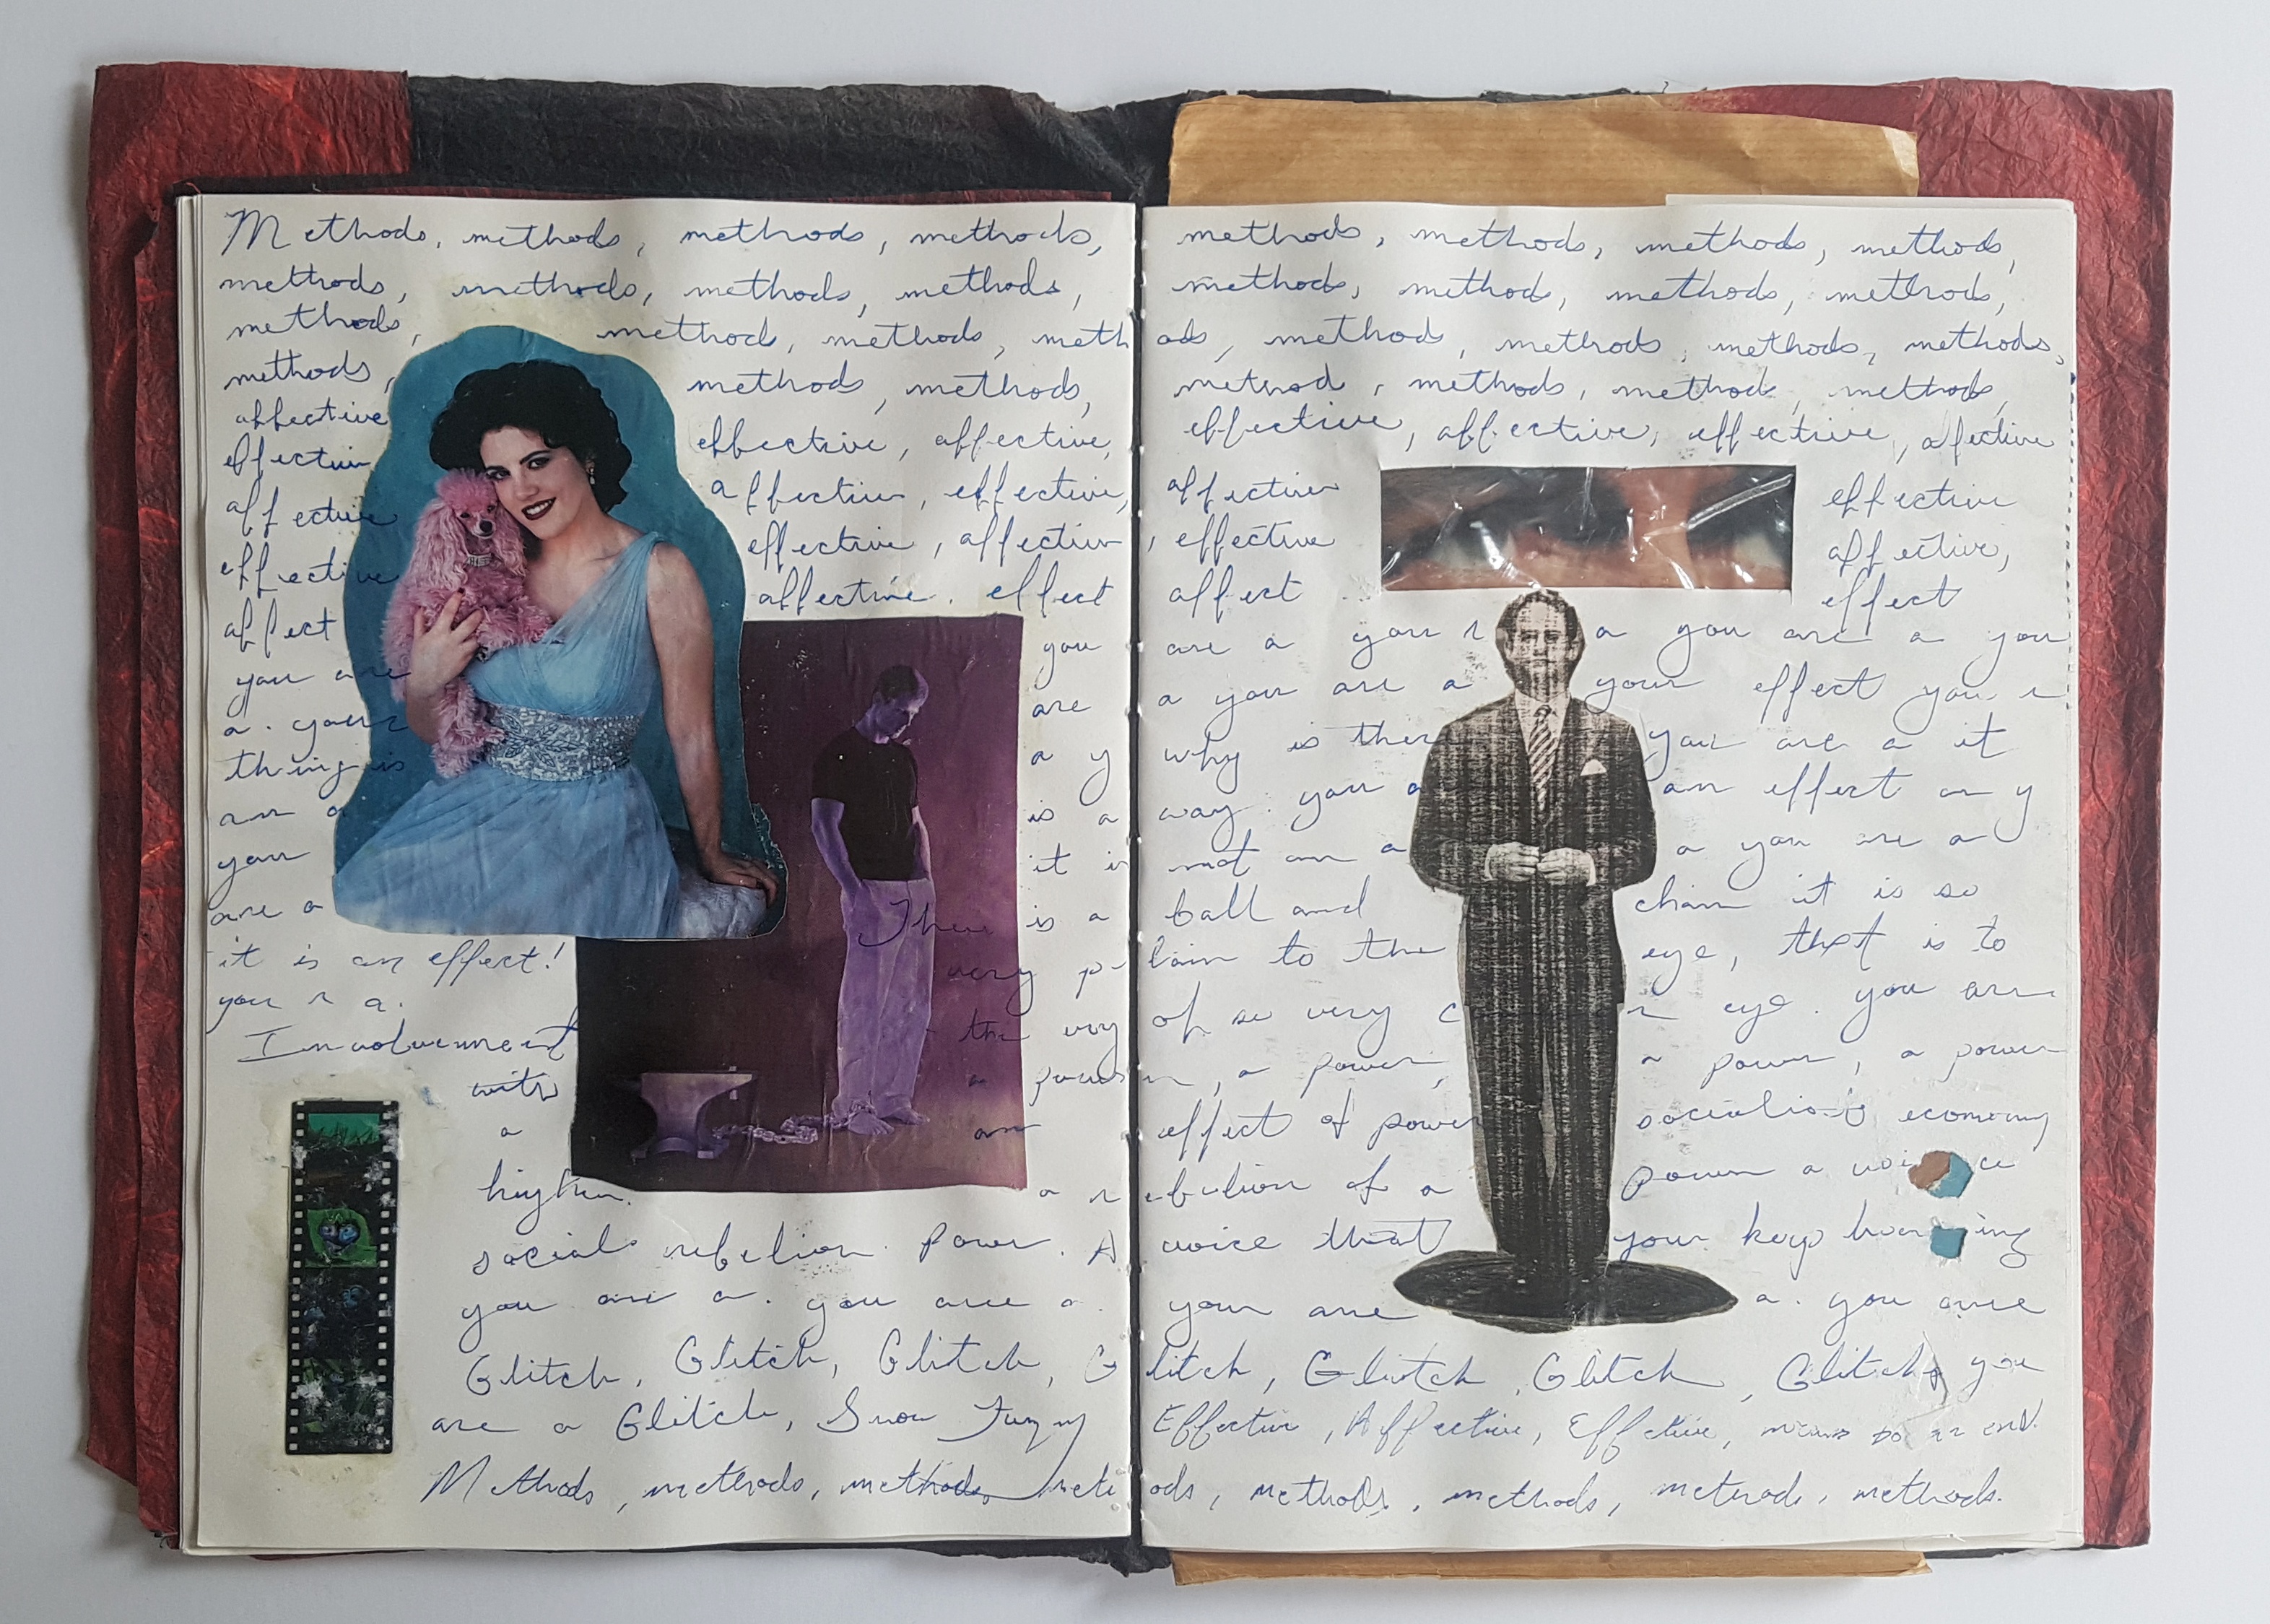 Methods, methods, methods, methods, methods, methods, methods, methods,
methods, methods, methods, methods, methods, methods, methods, methods,
methods, methods, methods, methods, methods, methods, methods, methods,
methods, methods, methods, method, methods, methods, methods,
affective effective, affective, effective, affective, effective, affective
effective affective, effective, affective effective
affective effective, affective, effective affective,
effective affective. effect affect effect
affect you are a you r a you are a you
you are are a you are a your effect you r
a. your a y why is you are a it
thing is is a way. you a an effect on y
an a it is not an a a you are a
you There is a ball and chain it is so
are a very plain to the eye, that is to
it is an effect! the very of so very eye. you are
you r a. a power, a power, a power, a power
Involvement an effect of power socialist economy
with a rebelion of a power a voice
a voice that your keep hearing
higher. you are a. you are
social rebelion. Power. A
you are a. you are a.
Glitch, Glitch, Glitch, Glitch, Glitch, Glitch, Glitch, you
are a Glitch, Snow Effective, Affective, Effective, means to an end.
Methods, methods, methods, methods, methods, methods, methods, methods.